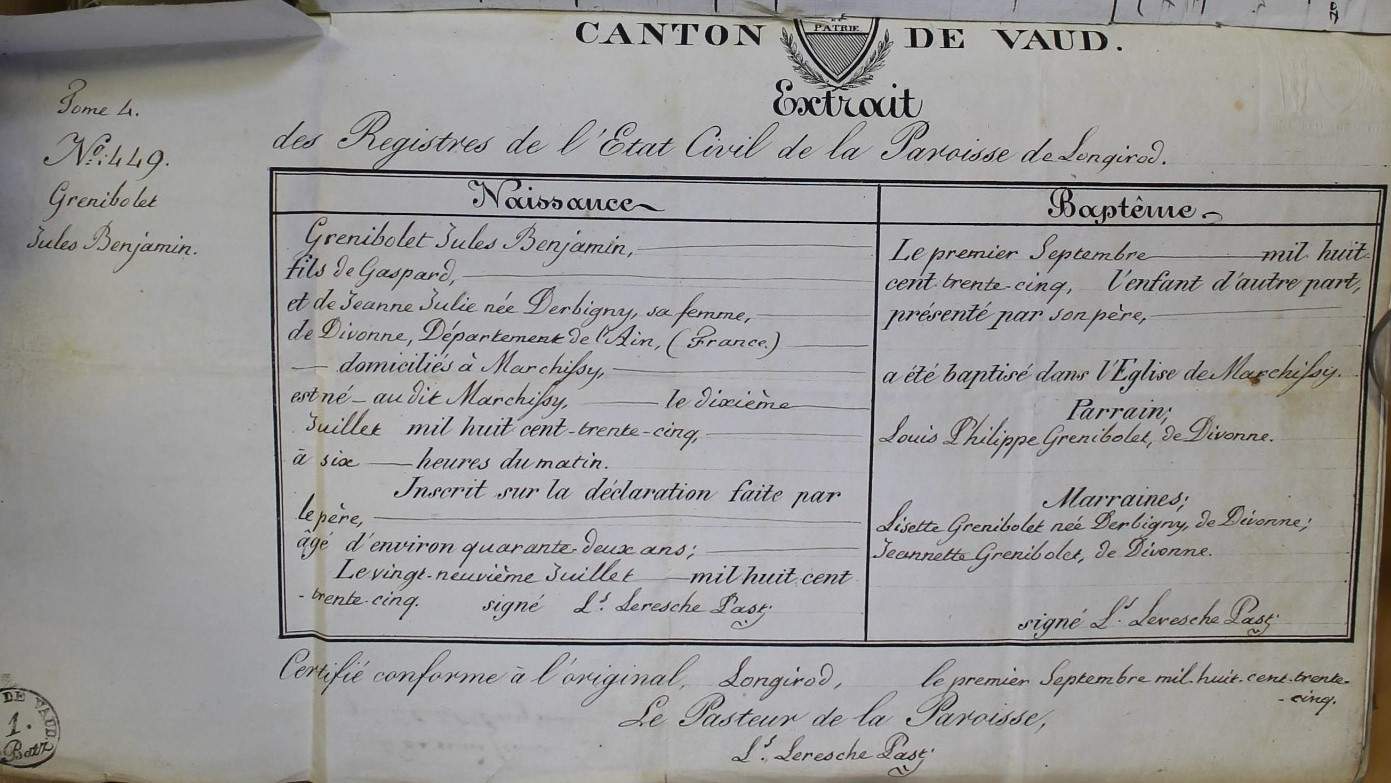 CANTON DE VAUD.
PATRIE
Extrait
des Registres de l'Etat Civil de la Paroisse de Longirod.
Tome 4.
No: 449.
Grenibolet
Jules Benjamin.
Naissance
Grenibolet Jules Benjamin,
fils de Gaspard,
et de Jeanne Julie née Derbigny, sa femme,
de Divonne, Département de l'Ain, (France.)
domiciliés à Marchissy,
est né - au dit Marchissy, le dixième
Juillet mil huit cent-trente-cinq,
à six heures du matin.
Inscrit sur la déclaration faite par
le père,
âgé d'environ quarante-deux ans;
Le vingt-neuvième Juillet mil huit cent
-trente-cinq. signé Ls. Leresche Past:
Baptême
Le premier Septembre mil huit-
cent-trente-cinq, l'enfant d'autre part,
présenté par son père,
a été baptisé dans l'Eglise de Marchissy.
Parrain;
Louis Philippe Grenibolet, de Divonne.
Marraines;
Lisette Grenibolet neé Derbigny, de Divonne;
Jeannette Grenibolet, de Divonne.
signé Ls. Leresche Past:
Certifié conforme à l'original, Longirod, le premier Septembre mil-huit-cent-trente-
-cinq.
Le Pasteur de la Paroisse,
Ls. Leresche Past:
DE VAUD.
1.
Batz